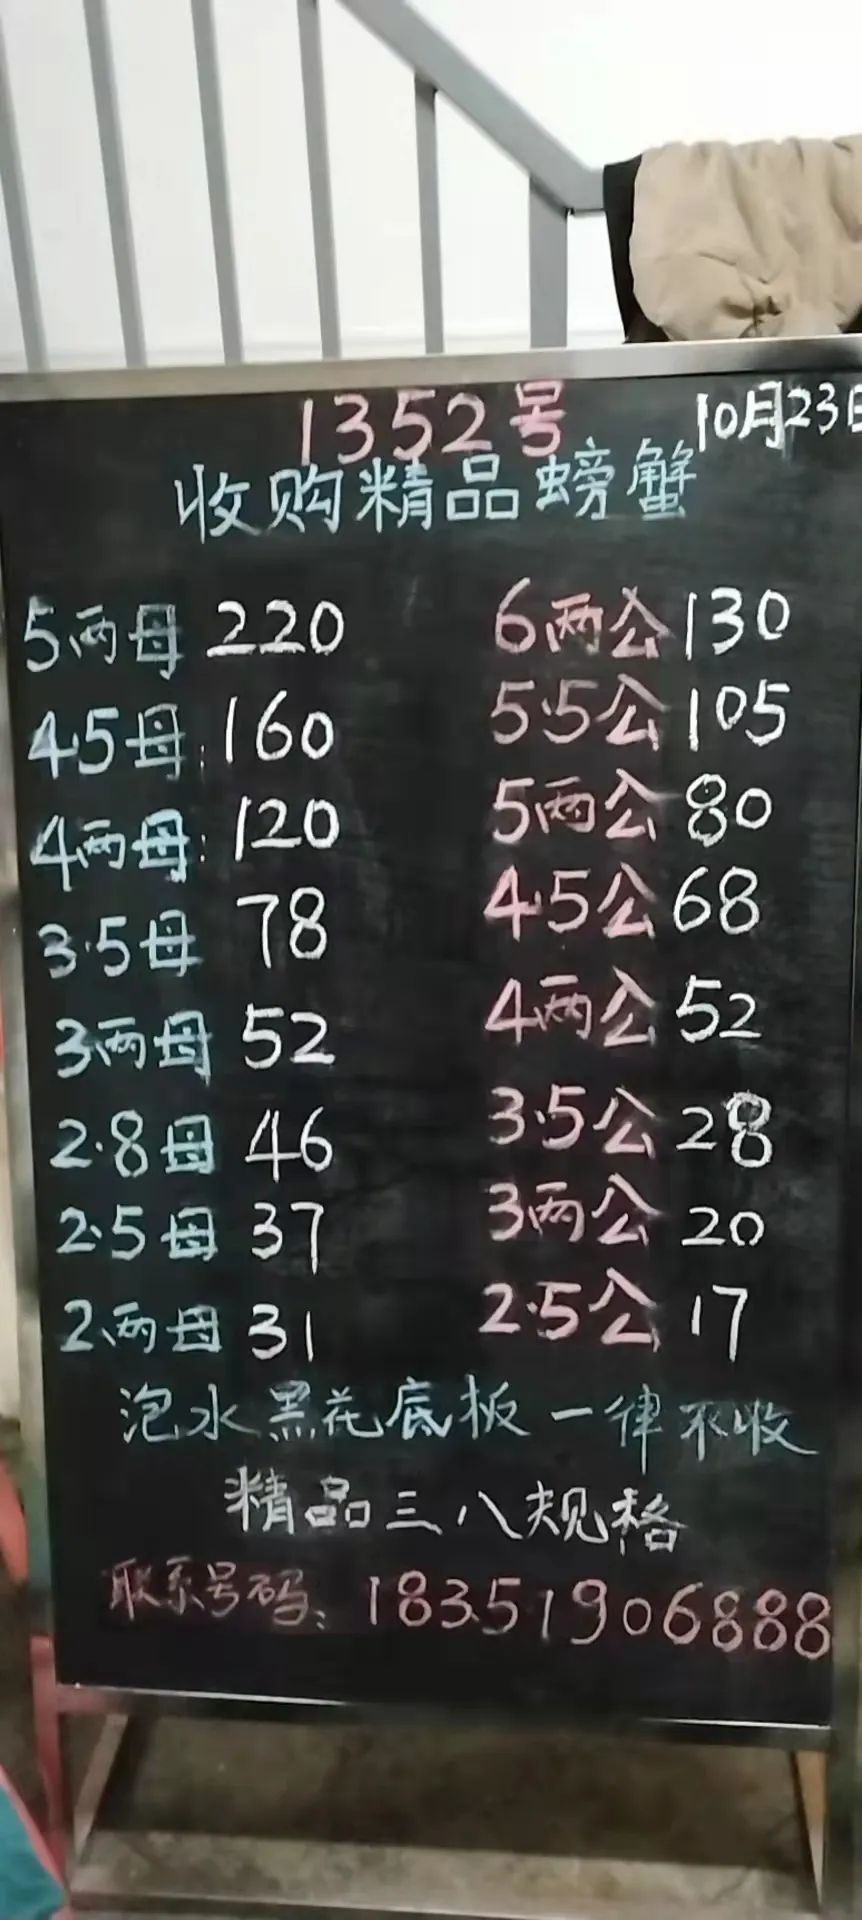 1352号 10月23日
收购精品螃蟹
5两母 220 6两公 130
4.5母: 160 5.5公 105
4两母: 120 5两公 80
3.5母 78 4.5公 68
3两母 52 4两公 52
2.8母 46 3.5公 28
2.5母 37 3两公 20
2两母 31 2.5公 17
泡水黑花底板一律不收
精品三八规格
联系号码: 18351906888